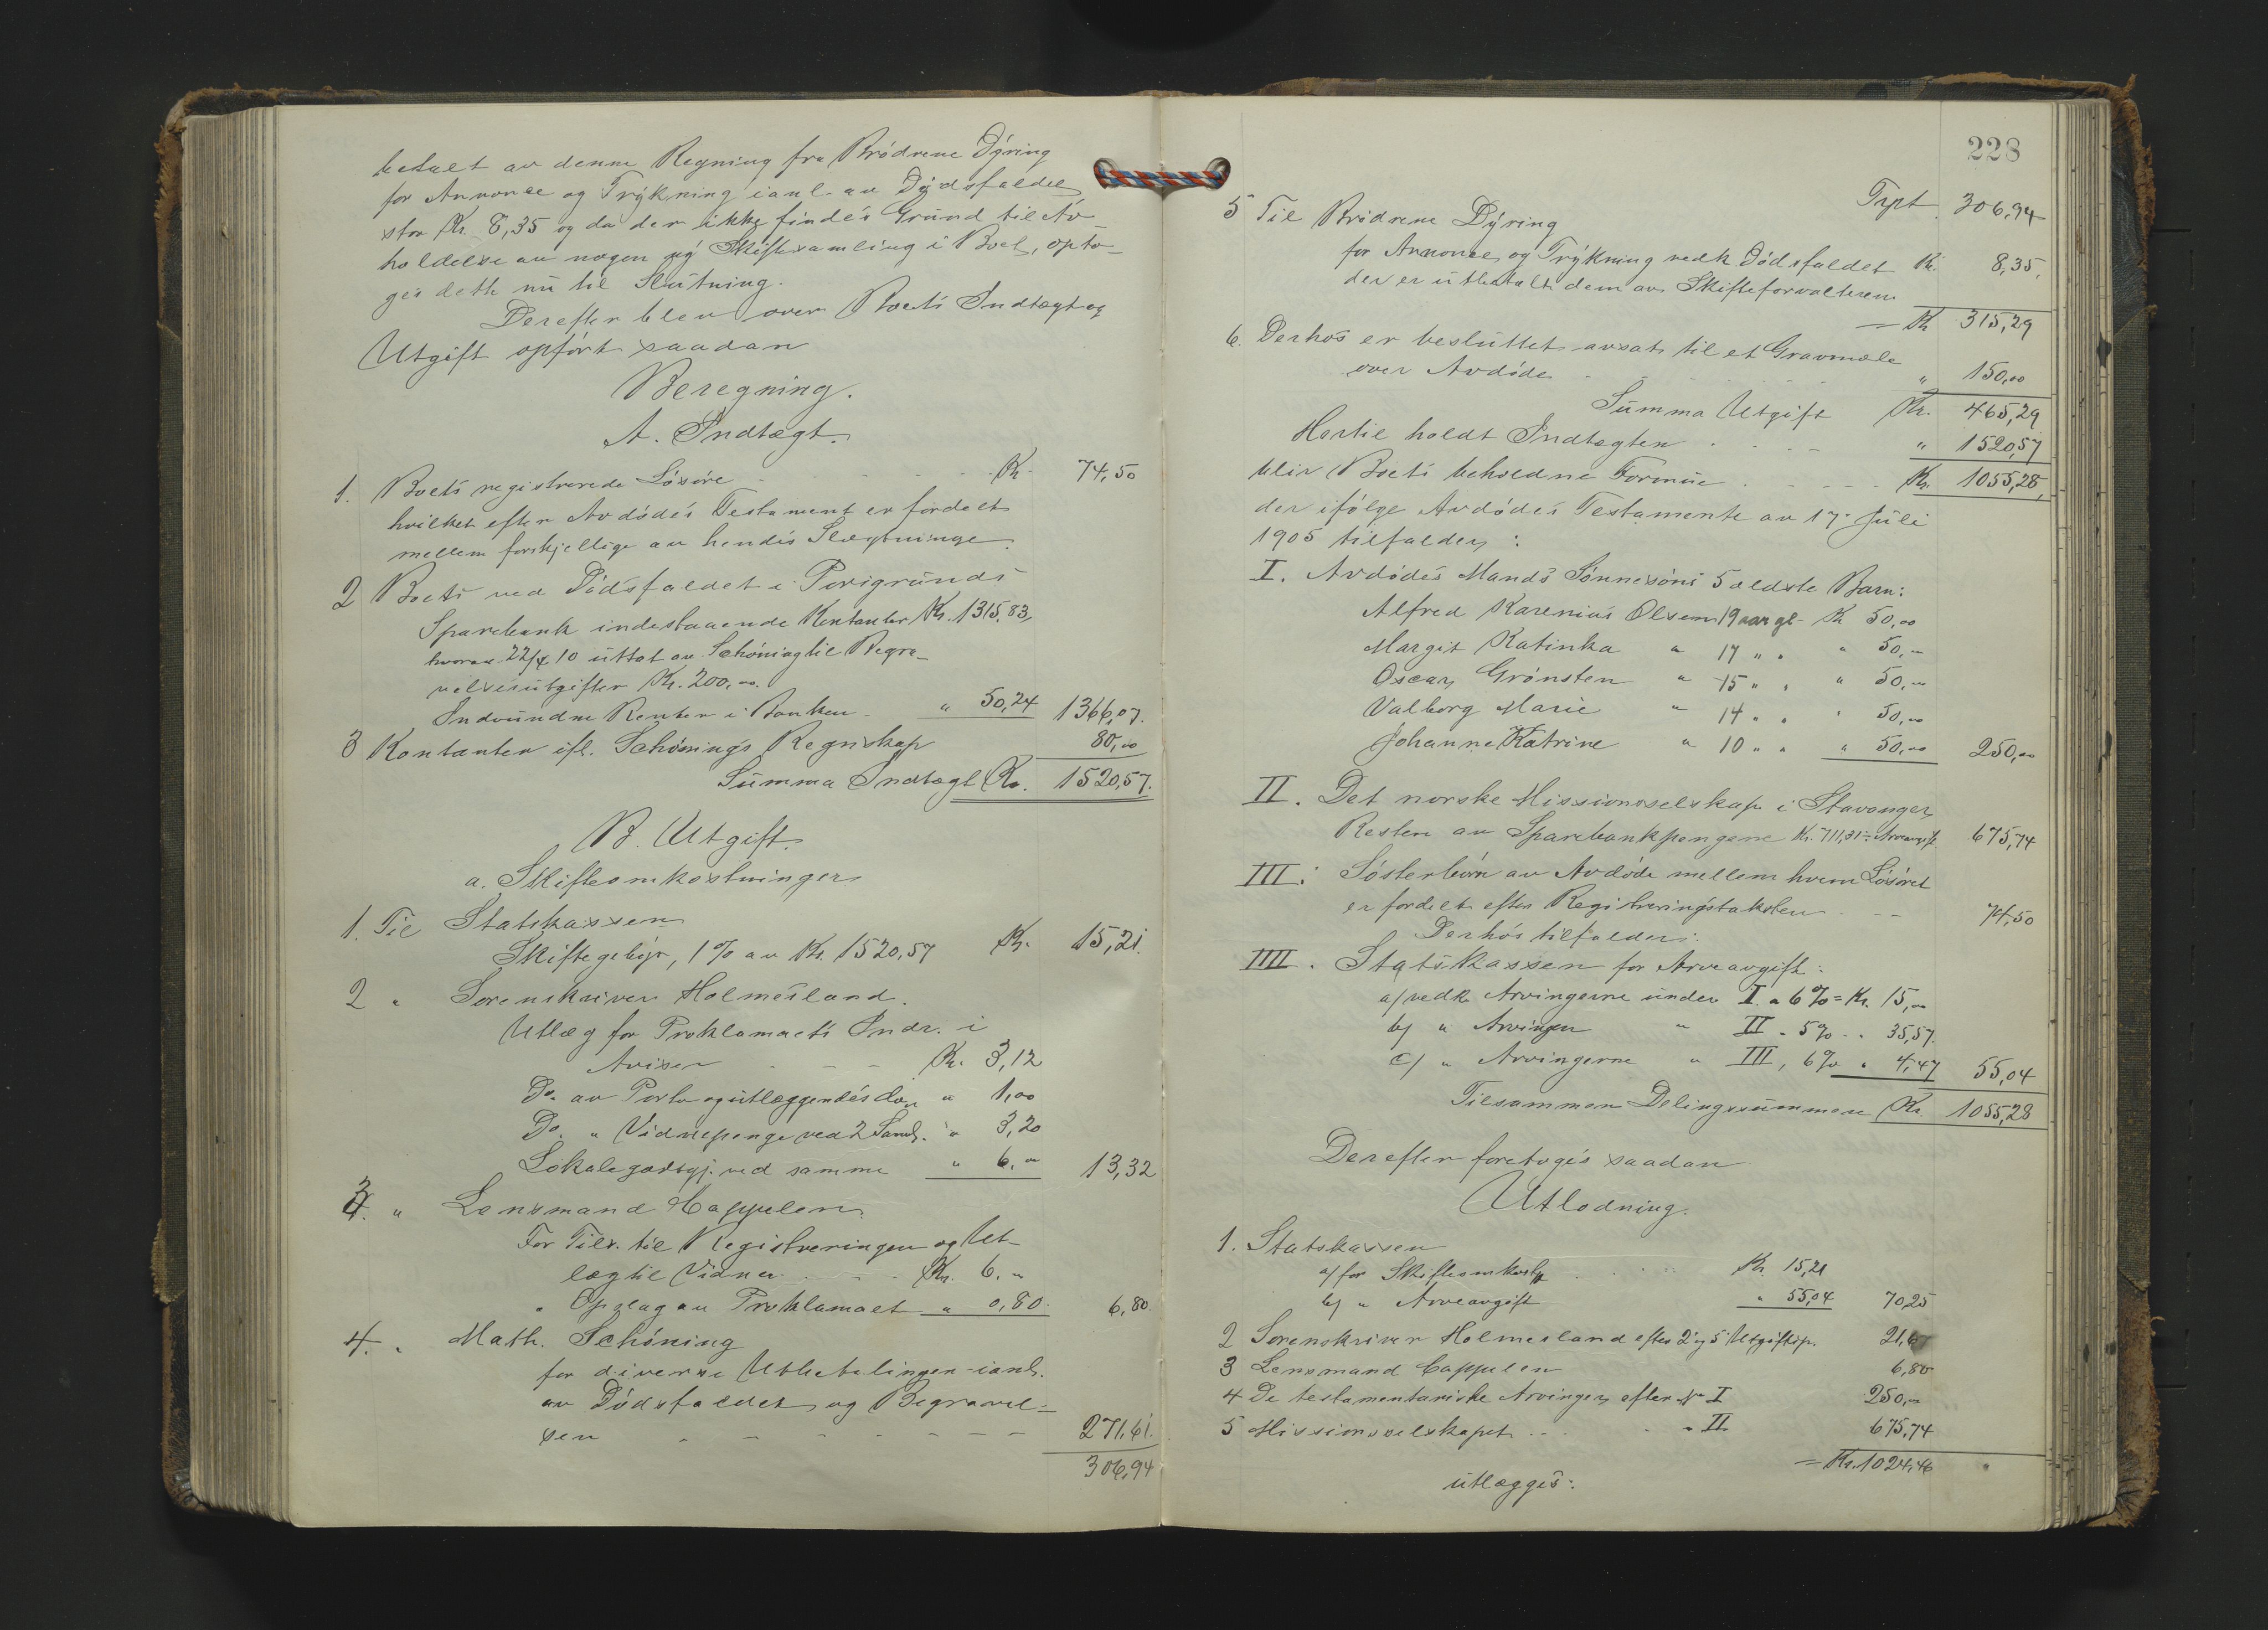 betalt av denne Regning fra Brødrene Dyring
for Annonce og Trykning i anl. av Dødsfaldet
stor Kr. 8,35 og da der ikke findes Grund til Av-
holdelse av nogen ny Skiftesamling i Boet, opto-
ges dette nu til Slutning.
Derefter blev over Boets Indtægt og
Utgift opført saadan
Beregning.
A. Indtægt.
1. Boets registrerede Løsøre Kr. 74,50
hvilket efter Avdødes Testament er fordelt
mellem forskjellige av hendes Slegtninge.
2 Boets ved Dødsfaldet i Porsgrunds
Sparebank indestaaende Kontanter Kr. 1315,83,
hvorav 22/4 10 uttat av Schöning til Begra-
velsesutgifter Kr. 200,00.
Indvundne Renter i Banken " 50,24 1366,07.
3 Kontanter ifl. Schönings Regnskap 80,00
Summa Indtægt Kr. 1520,57.
B. Utgift.
a. Skifteomkostninger
1. Til Statskassen
Skiftegebyr, 1 % av Kr. 1520,57 Kr. 15,21.
2 " Sorenskriver Holmesland.
Utlæg for Proklamaets Indr. i
Aviser Kr. 3,12
Do. av Porto og utlæggendes do. " 1,00
Do. " Vidnepenge ved 2 Saml. " 3,20
Lokalegodtgj. ved samme " 6,00 13,32
3. " Lensmand Cappelen.
For Tils. til Registreringen og Ut-
læg til Vidner Kr. 6.00
" Opslag av Proklamaet " 0,80 6,80.
4. " Math. Schöning
for diverse Utbetalinger i anl.
av Dødsfaldet og Begravel-
sen 271,61.
306,94
228
Trpt. 306,94
5 Til Brødrene Dyring
for Annonce og Trykning vedk. Dødsfaldet Kr. 8,35.
der er utbetalt dem av Skifteforvalteren
= Kr 315,29
6. Derhos er besluttet avsat til et Gravmæle
over Avdøde " 150,00
Summa Utgift Kr. 465,29
Hertil holdt Indtægten " 1520,57
blir Boets beholdne Formue Kr. 1055,28,
der ifølge Avdødes Testamente av 17. Juli
1905 tilfalder:
I. Avdødes Mands Sønnesøns 5 ældste Barn:
Alfred Karenius Olsen 19 aar gl. Kr 50,00
Margit Katinka " 17 " " " 50,00
Oscar Grønsten " 15 " " " 50,00
Valborg Marie " 14 " " " 50,00
Johanne Katrine " 10 " " " 50,00 250,00
II. Det norske Missionsselskap i Stavanger
Resten av Sparebankpengene Kr. 711,31 ÷ Arveavgift 675,74
III. Søsterbørn av Avdøde mellem hvem Løsøret
er fordelt efter Registreringstaksten 74,50
Derhos tilfalder:
IIII. Statskassen for Arveavgift:
a/ vedk. Arvingerne under I. a 6% = Kr. 15,00
b/ " Arvingen " II " 5% " " 35,57.
c/ " Arvingerne " III, 6% " 4,47 55,04
Tilsammen Delingssummen Kr. 1055,28
Derefter foretoges saadan
Utlodning.
1. Statskassen
a/ for Skifteomkostn. Kr 15,21
b/ " Arveavgift " 55,04 70,25
2 Sorenskriver Holmesland efter 2 og 5 Utgiftsp. 21,67
3 Lensmand Cappelen 6,80
4 De testamentariske Arvinger efter No I 250,00
5 Missionsselskapet " " II 675,74
= Kr. 1024,46
utlægges: